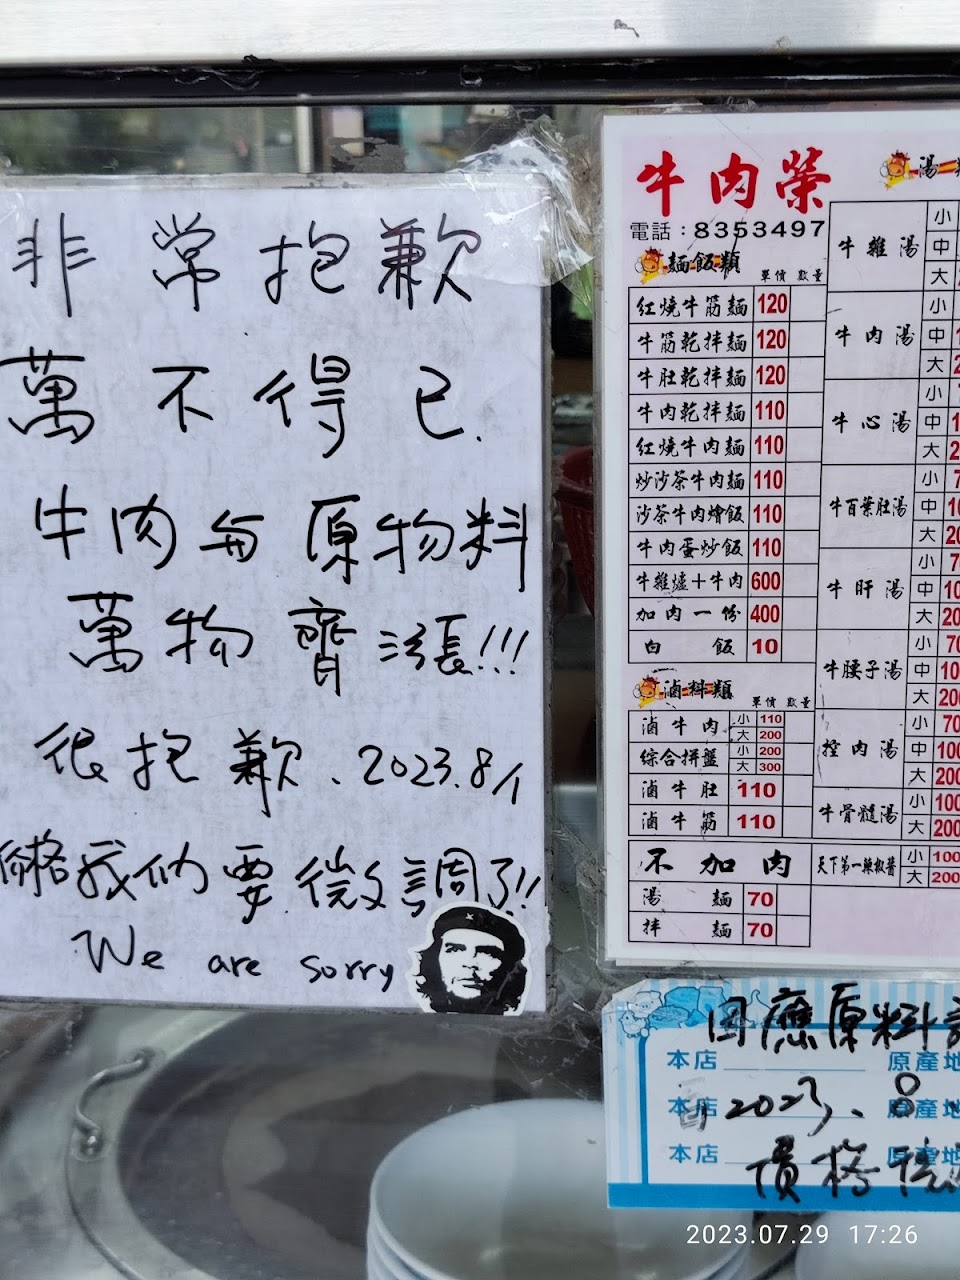 非常抱歉
萬不得已.
牛肉與原物料
萬物齊漲!!!
很抱歉、2023.8/1
價格我们要微文調了!!
We are sorry
牛肉榮
電話：8353497
麵飯類
單價 數量
紅燒牛筋麵 120
牛筋乾拌麵 120
牛肚乾拌麵 120
牛肉乾拌麵 110
紅燒牛肉麵 110
炒沙茶牛肉麵 110
沙茶牛肉燴飯 110
牛肉蛋炒飯 110
牛雜爐＋牛肉 600
加肉一份 400
白飯 10
滷料類
單價 數量
滷牛肉 小 110
大 200
綜合拼盤 小 200
大 300
滷牛肚 110
滷牛筋 110
不加肉
湯麵 70
拌麵 70
湯
牛雜湯 小
中
大
牛肉湯 小
中
大
牛心湯 小
中
大
牛百葉肚湯 小
中
大
牛肝湯 小
中
大
牛腰子湯 小 70
中
大 200
控肉湯 小 70
中 100
大 200
牛骨髓湯 小 100
大 200
天下第一辣椒醬 小 100
大 200
因應原料
本店 原產地
本店 2023.8 原產地
本店 原產地
價格
2023.07.29 17:26